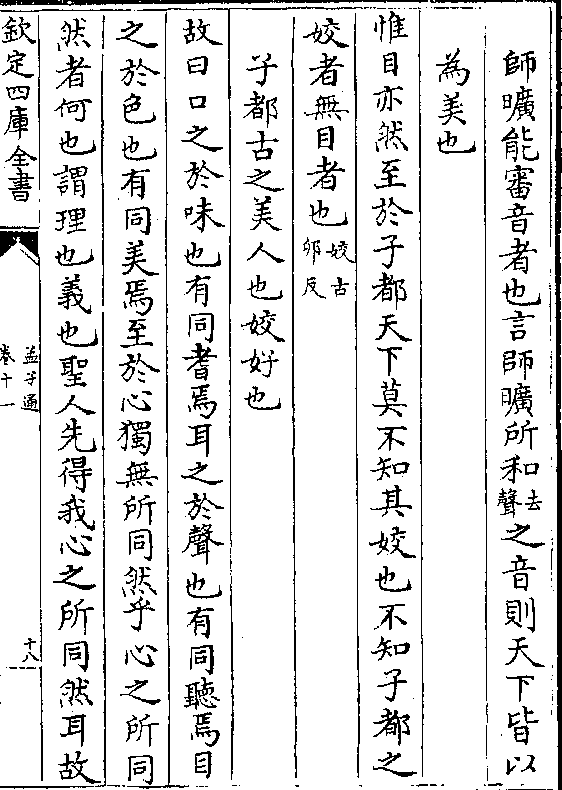 師曠能審音者也言師曠所和去聲之音則天下皆以
為美也
惟目亦然至於子都天下莫不知其姣也不知子都之
姣者無目者也姣古卯反
子都古之美人也姣好也
故曰口之於味也有同耆焉耳之於聲也有同聽焉目
之於色也有同美焉至於心獨無所同然乎心之所同
然者何也謂理也義也聖人先得我心之所同然耳故
欽定四庫全書
孟子通
卷十一
十八